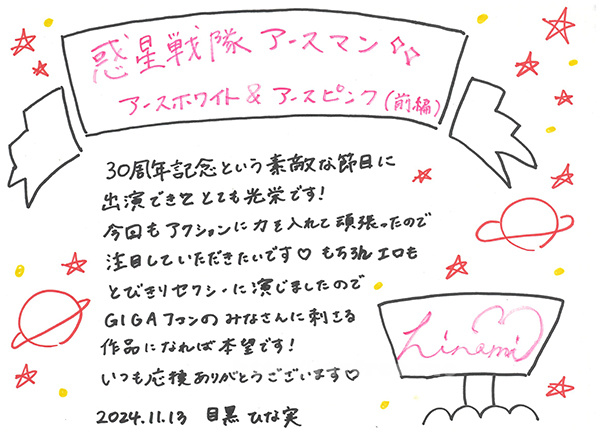 惑星戦隊 アースマン
アースホワイト & アースピンク(前編)
30周年記念という素敵な節目に
出演できてとても光栄です!
今回もアクションに力を入れて頑張ったので
注目していただきたいです♡ もちろんエロも
とびきりセクシーに演じましたので
GIGAファンのみなさんに刺さる
作品になれば本望です!
いつも応援ありがとうございます♡
2024.11.13 目黒 ひな実
Hinami